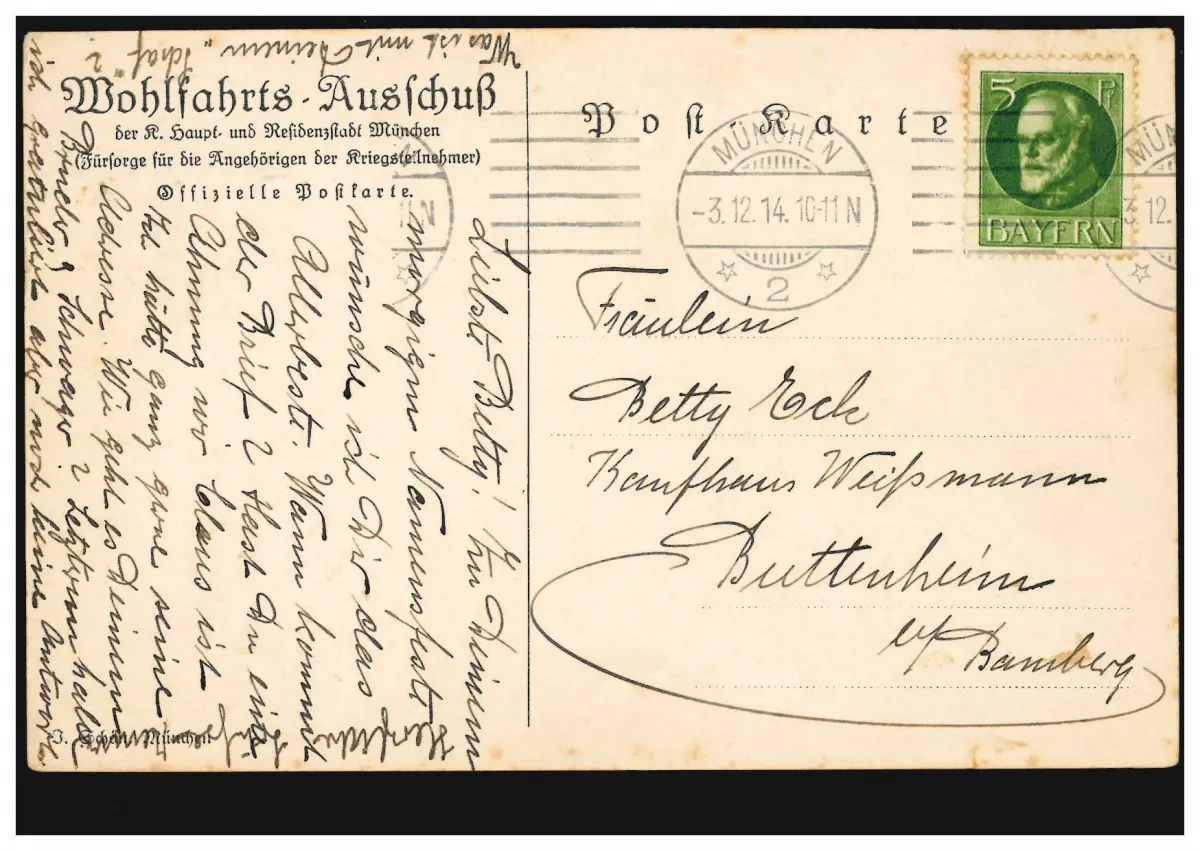 Wohlfahrts-Ausschuß
der K. Haupt- und Residenzstadt München
(Fürsorge für die Angehörigen der Kriegsteilnehmer)
Offizielle Postkarte.
Postkarte
5 Pf
BAYERN
MÜNCHEN
-3.12.14. 10-11 N
2
MÜN
3.12.
11 N
Fräulein
Betty Eck
Kaufhaus Weißmann
Buttenheim
b/ Bamberg
Liebste Betty! Zu Deinem
morgigen Namensfeste
wünsche ich Dir das
Allerbeste. Wann kommt
der Brief? Hast Du eine
Ahnung wo Claus ist
Ich hätte ganz gerne seine
Adresse. Wie geht es Deinem
Bruder & Schwager? Letzterem habe
ich gratuliert aber noch keine Antwort.
Was ist mit Deinem „Schaf“?
Herzliche
J. Schön München